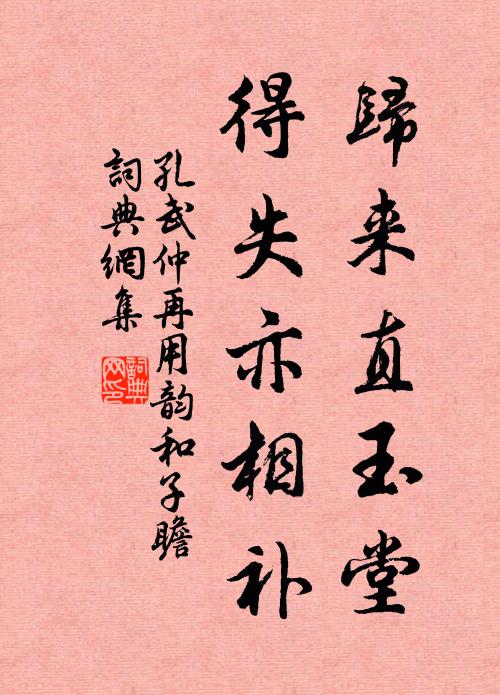 歸来直玉堂
得失亦相补
孔武仲再用韵和子瞻
詞典網集
詞典网印